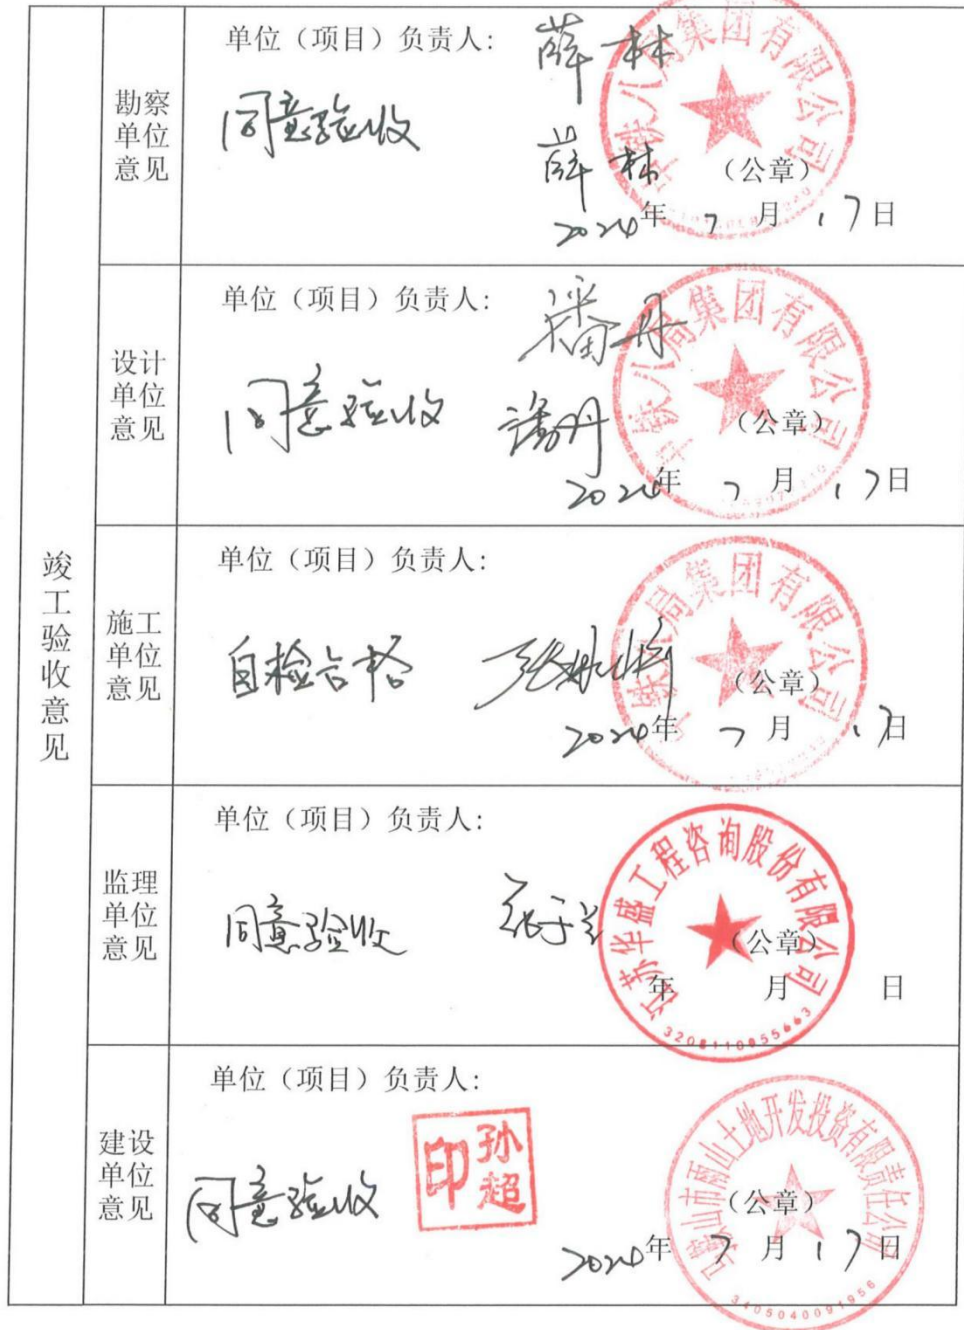 竣工验收意见
勘察单位意见
单位（项目）负责人：
薛林
同意验收
薛林
中铁八局集团有限公司
（公章）
2024年 7 月 17日
设计单位意见
单位（项目）负责人：
潘丹
同意验收
潘丹
中铁八局集团有限公司
（公章）
2024年 7 月 17日
施工单位意见
单位（项目）负责人：
自检合格
中铁八局集团有限公司
（公章）
2024年 7 月 17日
监理单位意见
单位（项目）负责人：
同意验收
江苏华盛工程咨询股份有限公司
（公章）
年 月 日
建设单位意见
单位（项目）负责人：
孙超印
同意验收
马鞍山市雨山土地开发投资有限责任公司
（公章）
2024年 7 月 17日
3405040091956